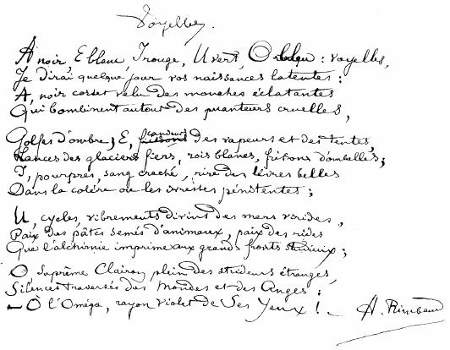 Voyelles
A noir, E blanc, I rouge, U vert, O bleu : voyelles,
Je dirai quelque jour vos naissances latentes :
A, noir corset velu des mouches éclatantes
Qui bombinent autour des puanteurs cruelles,
Golfes d'ombre ; E, candeurs des vapeurs et des tentes,
Lances des glaciers fiers, rois blancs, frissons d'ombelles ;
I, pourpres, sang craché, rire des lèvres belles
Dans la colère ou les ivresses pénitentes ;
U, cycles, vibrements divins des mers virides,
Paix des pâtis semés d'animaux, paix des rides
Que l'alchimie imprime aux grands fronts studieux ;
O Suprême Clairon plein des strideurs étranges,
Silences traversés des Mondes et des Anges :
– O l'Oméga, rayon violet de Ses Yeux ! –
A. Rimbaud